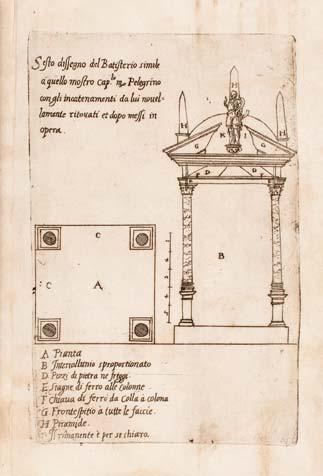 Sesto dissegno del Batisterio simile
à quello mostro cap.lo m.o Pelegrino
con gli incatenamenti da lui novel-
lamente ritovati et dopo messi in
opera.
H
H
H
K
I
G
G
F
D
D
B
C
C
A
A Pianta
B Intercollunio sproportionato
D Pezzi di pietra ne freggi
E Stagne di ferro alle colonne
F Chiava di ferro da colla à colona
G Frontespitio à tutte le faccie.
H Piramide.
Il rimanente è per se chiaro.